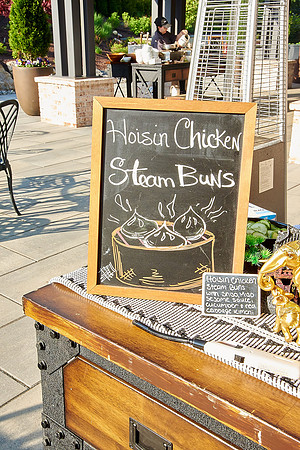 Hoisin Chicken
Steam Buns
Hoisin Chicken
Steam Buns
with
sesame sauce,
cucumber & red
cabbage kimchi